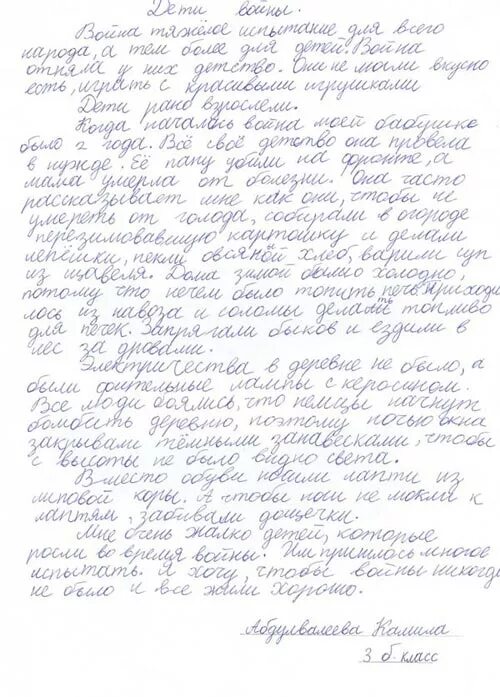 Дети войны.
Война тяжёлое испытание для всего
народа, а тем более для детей. Война
отняла у них детство. Они не могли вкусно
есть, играть с красивыми игрушками
Дети рано взрослели.
Когда началась война моей бабушке
было 2 года. Всё своё детство она провела
в нужде. Её папу убили на фронте, а
мама умерла от болезни. Она часто
рассказывает мне как они, чтобы не
умереть от голода, собирали в огороде
перезимовавшую картошку и делали
лепёшки, пекли овсяной хлеб, варили суп
из щавеля. Дома зимой было холодно,
потому что нечем было топить печь. Приходи
лось из навоза и соломы делать топливо
для печек. Запрягали быков и ездили в
лес за дровами.
Электричества в деревне не было, а
были фительные лампы с керосином.
Все люди боялись, что немцы начнут
бомбить деревню, поэтому ночью окна
закрывали тёмными занавесками, чтобы
с высоты не было видно света.
В-место обуви носили лапти из
липовой коры. А чтобы пош не мокли к
лаптям, забивали дощечки.
Мне очень жалко детей, которые
росли во время войны. Им пришлось многое
испытать. Я хочу, чтобы войны никогда
не было и все жили хорошо.
Абдулвалеева Камила
3 б класс